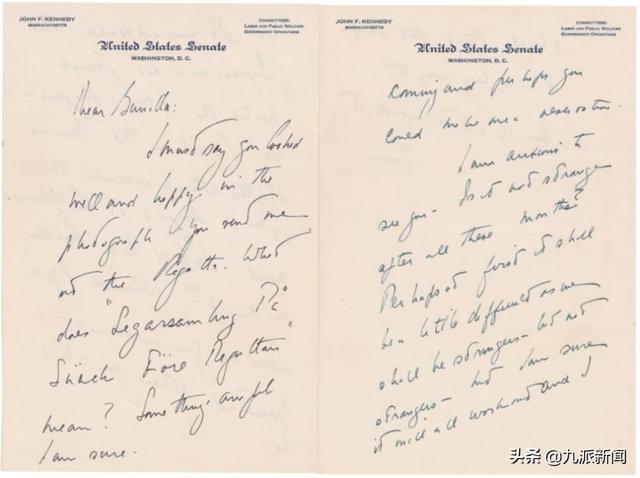 JOHN F. KENNEDY
MASSACHUSETTS
COMMITTEES:
LABOR AND PUBLIC WELFARE
GOVERNMENT OPERATIONS
United States Senate
WASHINGTON, D. C.
Dear Gunilla:
I must say you looked
well and happy in the
photograph you send me
at the Regatta. What
does "Segarsamling På
Skäck Före Regattan"
mean? Something awful
I am sure.
JOHN F. KENNEDY
MASSACHUSETTS
COMMITTEES:
LABOR AND PUBLIC WELFARE
GOVERNMENT OPERATIONS
United States Senate
WASHINGTON, D. C.
coming and perhaps you
could make me a reservation.
I am anxious to
see you. Is it not strange
after all these months?
Perhaps at first it shall
be a little different as we
shall be strangers - but not
strangers - but I am sure
it will all work and I
头条 @九派新闻